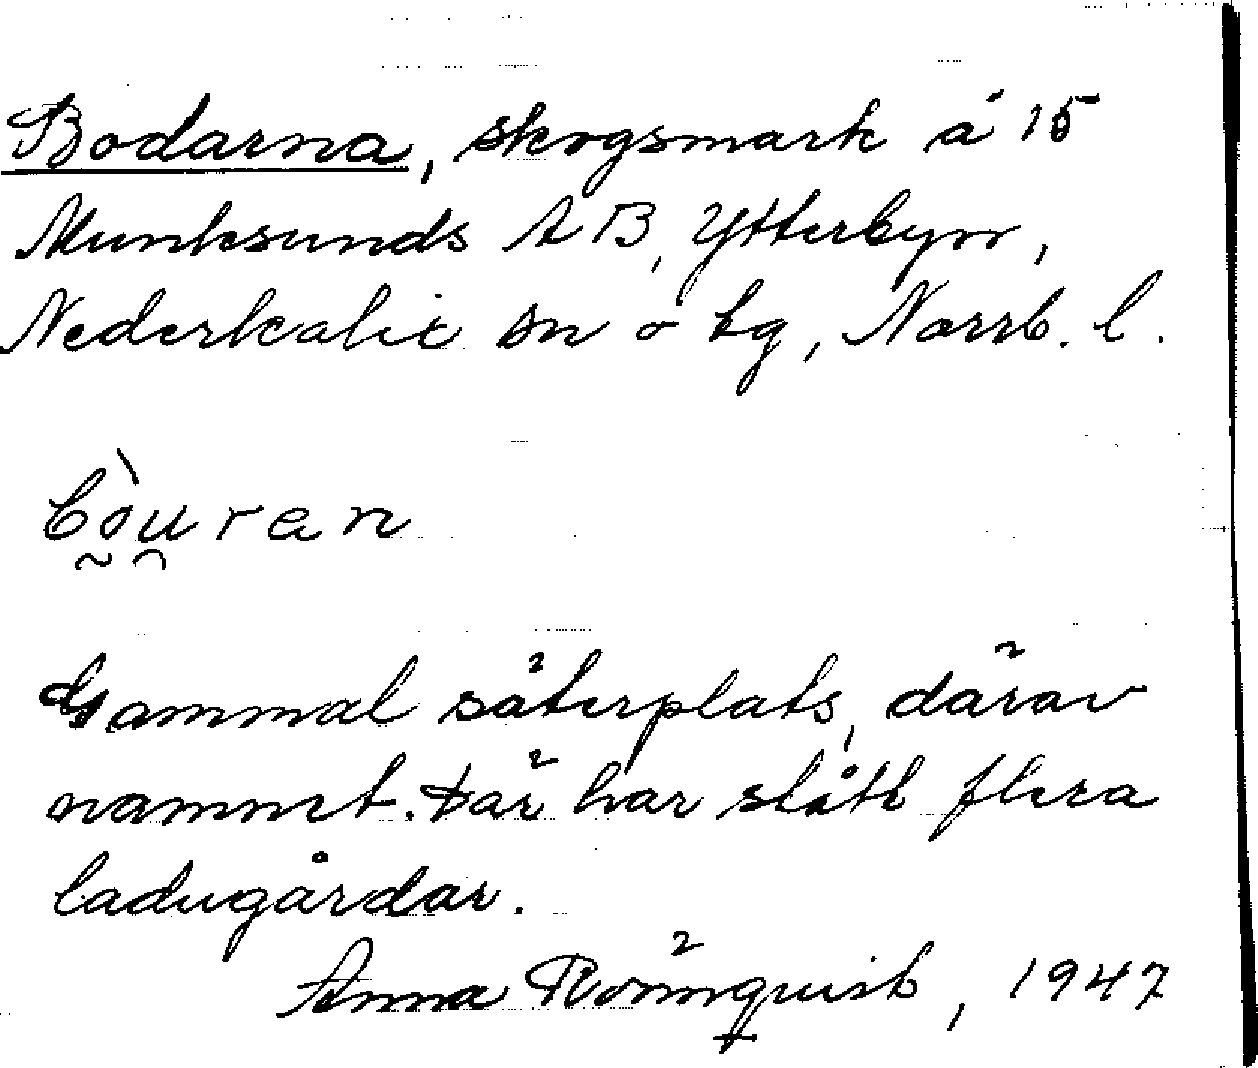 Bodarna, skogsmark å 15
Munksunds AB, Ytterbyn,
Nederkalix sn o hg, Norrb. l.
Gammal säterplats, därav
namnet. Där har stått flera
ladugårdar.
Anna Rönnquist, 1947